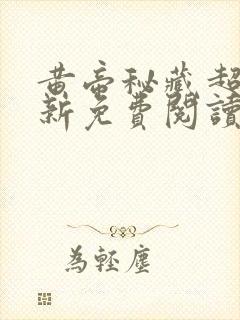 黃帝秘藏 超
新免費閱讀
為輕塵